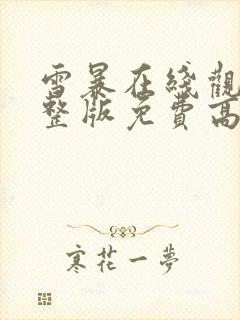 雪暴在綫觀
整版免費高
寒花一夢